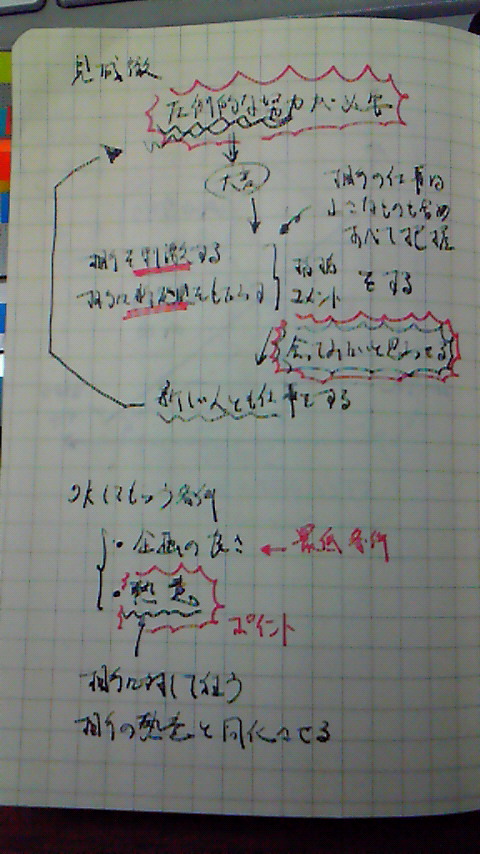 見城徹
圧倒的な努力が必要
大きな
相手の仕事は
小さなものも含め
すべて把握
相手を刺激する
相手に刺激をもたらす
コメント
をする
会ってみたいと思わせる
新しい人とも仕事をする
OKしてもらう条件
・企画の良さ ← 最低条件
・熱意
ポイント
相手に対して
相手の熱意と同化させる